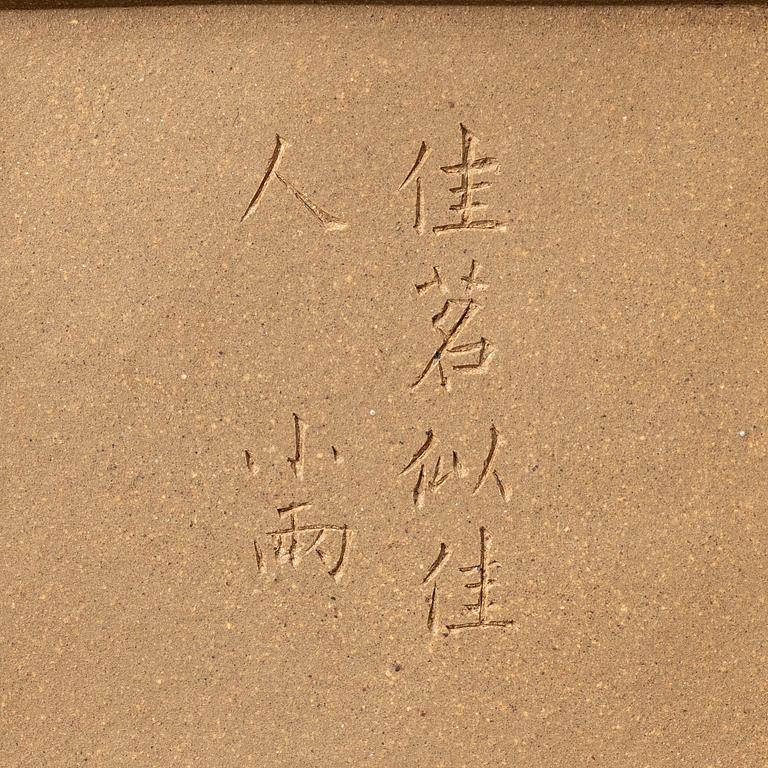 佳茗似佳
人 小雨